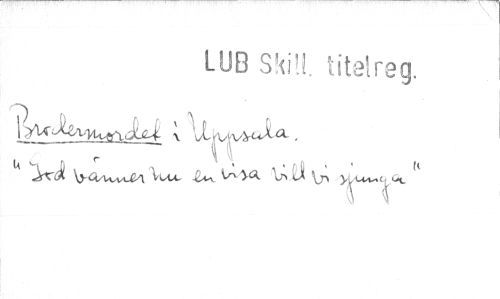 LUB Skill. titelreg.
Brodermordet i Uppsala.
" God vänner nu en visa vill vi sjunga "